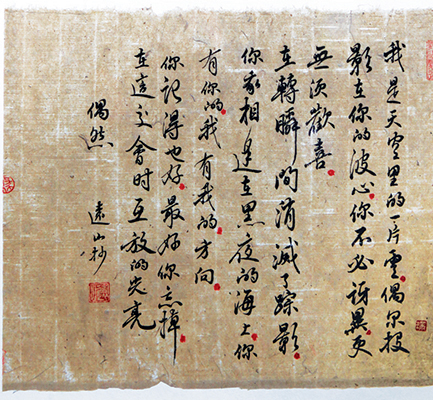 我是天空里的一片雲偶尔投
影在你的波心你不必讶異更
無须歡喜
在轉瞬間消滅了踪影
你我相逢在黑夜的海上你
有你的我有我的方向
你记得也好最好你忘掉
在這交會时互放的光亮
偶然 遠山抄